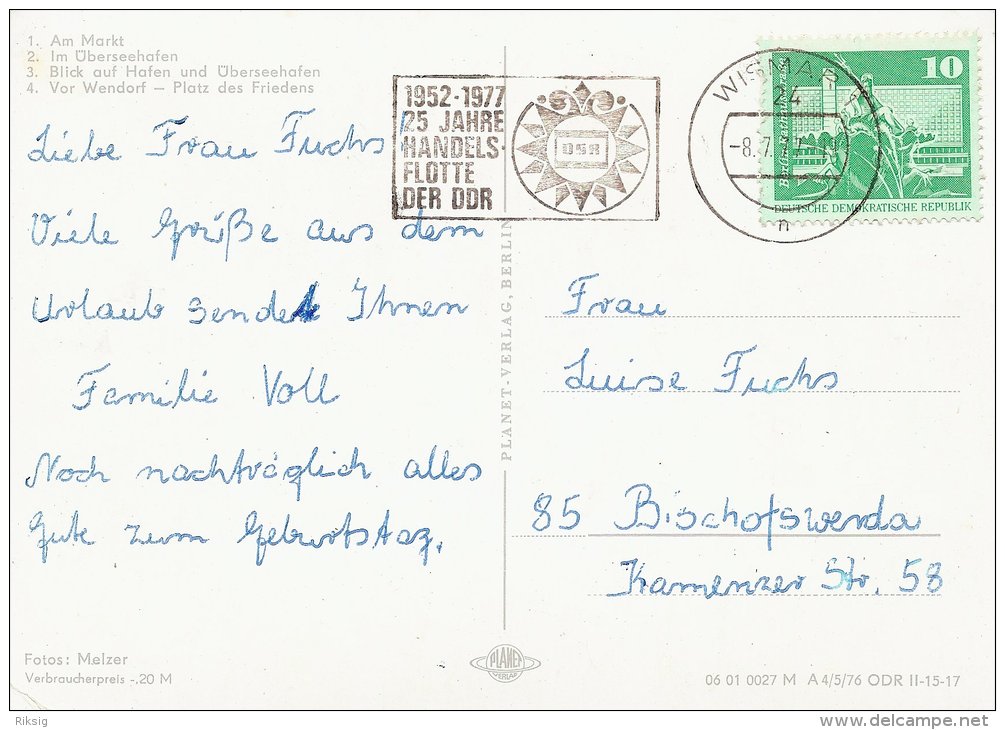 1. Am Markt
2. Im Überseehafen
3. Blick auf Hafen und Überseehafen
4. Vor Wendorf – Platz des Friedens
Liebe Frau Fuchs
Viele Grüße aus dem
Urlaub sendet Ihnen
Familie Voll
Noch nachträglich alles
Gute zum Geburtstag.
Fotos: Melzer
Verbraucherpreis -,20 M
1952-1977
25 JAHRE
HANDELS-
FLOTTE
DER DDR
DSR
WISMAR
24
-8.7.77
n
10
DEUTSCHE DEMOKRATISCHE REPUBLIK
PLANET-VERLAG, BERLIN
Frau
Luise Fuchs
85 Bischofswerda
Kamenzer Str. 58
PLANET
VERLAG
06 01 0027 M A 4/5/76 ODR II-15-17
Riksig
delcampe.net